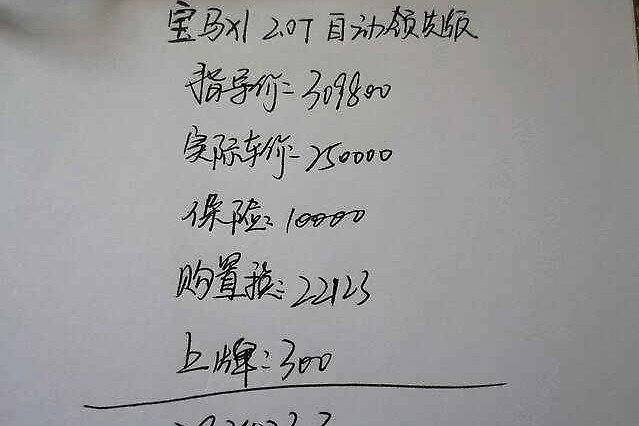 宝马X1 2.0T 自动领先版
指导价=309800
实际车价=250000
保险:10000
购置税:22123
上牌:300